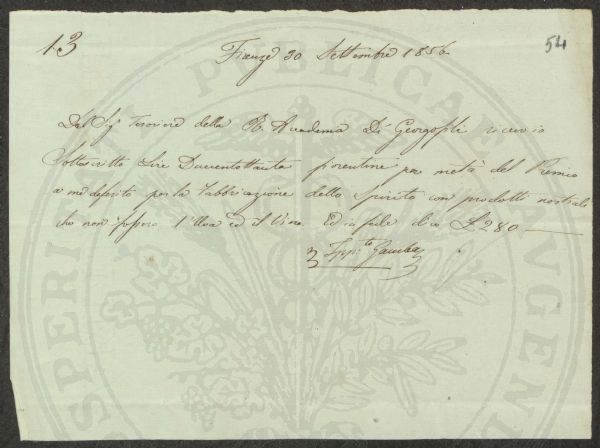 13
54
Firenze 30 Settembre 1856
Dal Sig.e Tesoriere della R. Accademia Di Georgofili ricevo io
Sottoscritto Lire Duecentottanta fiorentine per metà del Premio
a me deferito per la Fabbricazione dello Spirito con prodotti nostrali
che non fossero l'Uva ed il Vino. Ed in fede dico £ 280
Ipp.to Gamba
PROSPERITATI PUBLICAE AUGENDAE